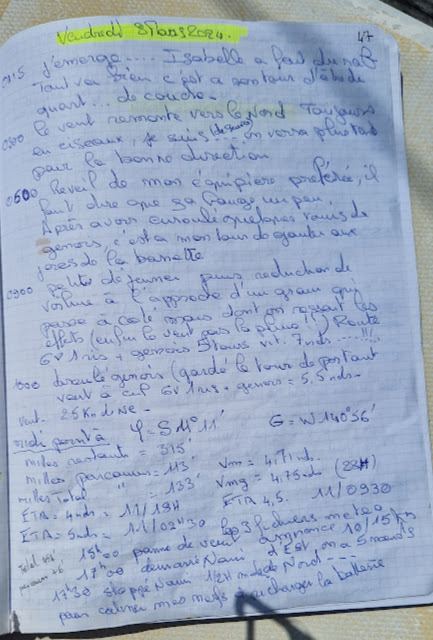 Vendredi 8 Mars 2024. 47
0115 J'émerge.... Isabelle a fait du rab
Tout va bien c'est a son tour d'être de
quart... de couche.
le vent remonte vers le Nord Toujours
0300 en ciseaux, je suis on verra plus tard
pour la bonne direction
0600 Reveil de mon équipière préférée, il
faut dire que ça tangue un peu
Après avoir enroulé quelques tours de
genois, c'est a mon tour de gouter aux
joies de la bannette
0900 petit dejeuner puis reduction de
voilure à l'approche d'un grain qui
passe à coté mais dont on reçoit les
effets (enfin le vent pas la pluie!!) Route
GV 1 ris + genois 5 tours vit. 7 nds....!!!
1000 déroulé genois (gardé le tour de portant
vent à cul GV 1 ris + genois = 5,5 nds-
Vent. 25 Kn de NE -
midi point à φ = S 11° 11' G = W 140° 56'
milles restants = 315'
milles parcourus = 113' Vm = 4.71 nds.
milles Total " = 133' Vmg = 4.75 nds (28H)
ETA = 4 nds = 11/18H ETA 4,5. 11/0930
ETA = 5 nds = 11/02H30
15H00 panne de vent les 3 fichiers meteo
17H00 demarré Nani annonce 10/15 Kn
d'Est on a 5 nœuds
17H30 stoppé Nani 1/2H mode Nord
pour calmer recharger la batterie